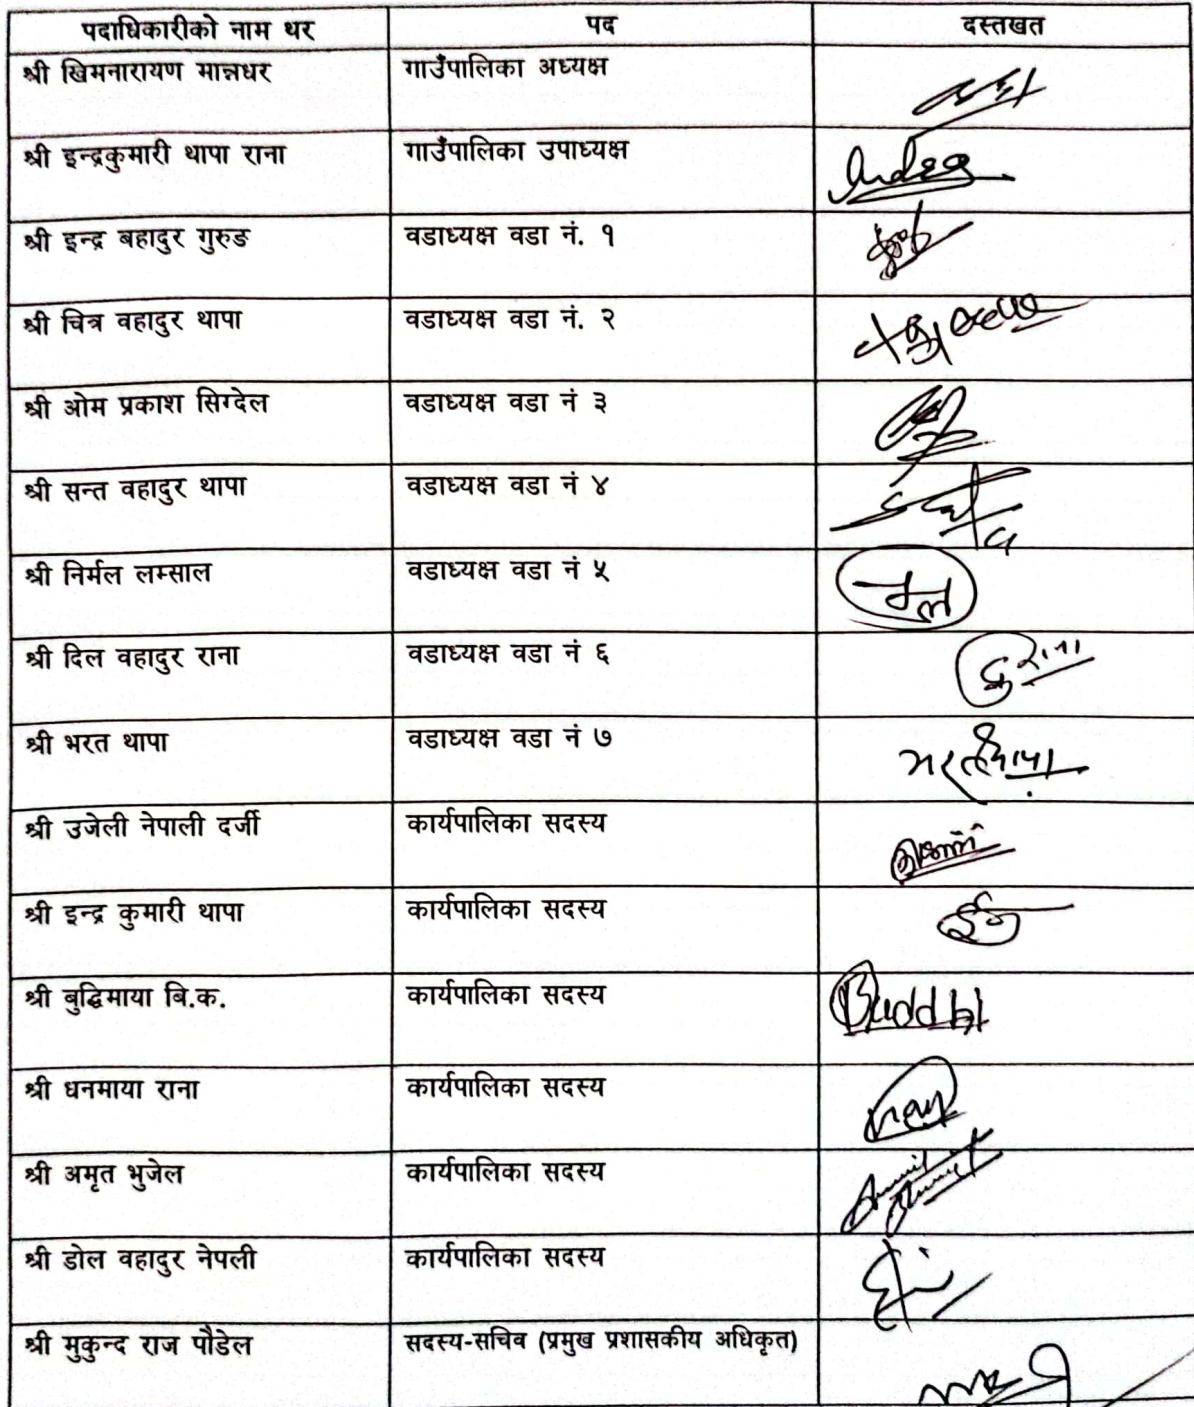 पदाधिकारीको नाम थर पद दस्तखत
श्री खिमनारायण मान्नधर गाउँपालिका अध्यक्ष
श्री इन्द्रकुमारी थापा राना गाउँपालिका उपाध्यक्ष
श्री इन्द्र बहादुर गुरुङ वडाध्यक्ष वडा नं. १
श्री चित्र वहादुर थापा वडाध्यक्ष वडा नं. २
श्री ओम प्रकाश सिग्देल वडाध्यक्ष वडा नं ३
श्री सन्त वहादुर थापा वडाध्यक्ष वडा नं ४
श्री निर्मल लम्साल वडाध्यक्ष वडा नं ५
श्री दिल वहादुर राना वडाध्यक्ष वडा नं ६
श्री भरत थापा वडाध्यक्ष वडा नं ७ भरत थापा
श्री उजेली नेपाली दर्जी कार्यपालिका सदस्य
श्री इन्द्र कुमारी थापा कार्यपालिका सदस्य
श्री बुद्धिमाया बि.क. कार्यपालिका सदस्य Buddhi
श्री धनमाया राना कार्यपालिका सदस्य
श्री अमृत भुजेल कार्यपालिका सदस्य
श्री डोल वहादुर नेपली कार्यपालिका सदस्य
श्री मुकुन्द राज पौडेल सदस्य-सचिव (प्रमुख प्रशासकीय अधिकृत)